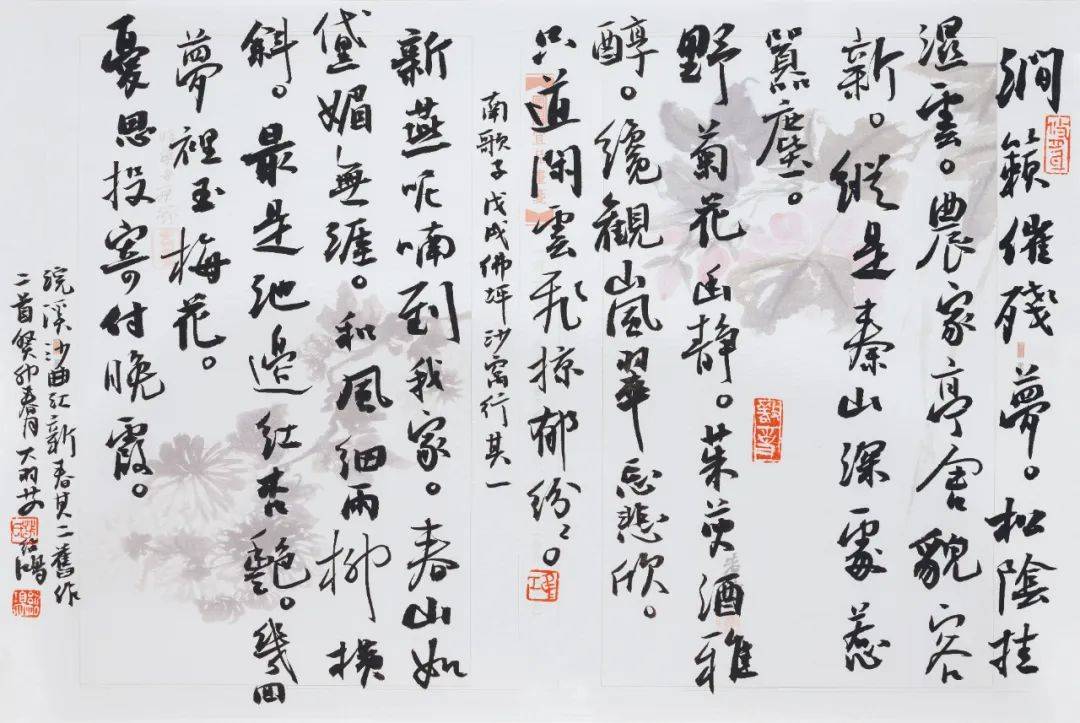 澗籟催殘夢。松陰挂
濕雲。農家亭舍貌容
新。縱是秦山深處惹
囂塵。
野菊花幽静。茱萸酒雅
醇。纔觀嵐翠忘悲欣。
只道闲雲飛掠郁紛〻。
南歌子戊戌佛坪沙窩行其一
新燕呢喃到我家。春山如
黛媚無涯。和風细雨柳横
斜。最是池邊紅杏艷。幾回
夢裡玉梅花。
憂思投寄付晚霞。
浣溪沙曲江新春其二舊作
二首癸卯春月大羽